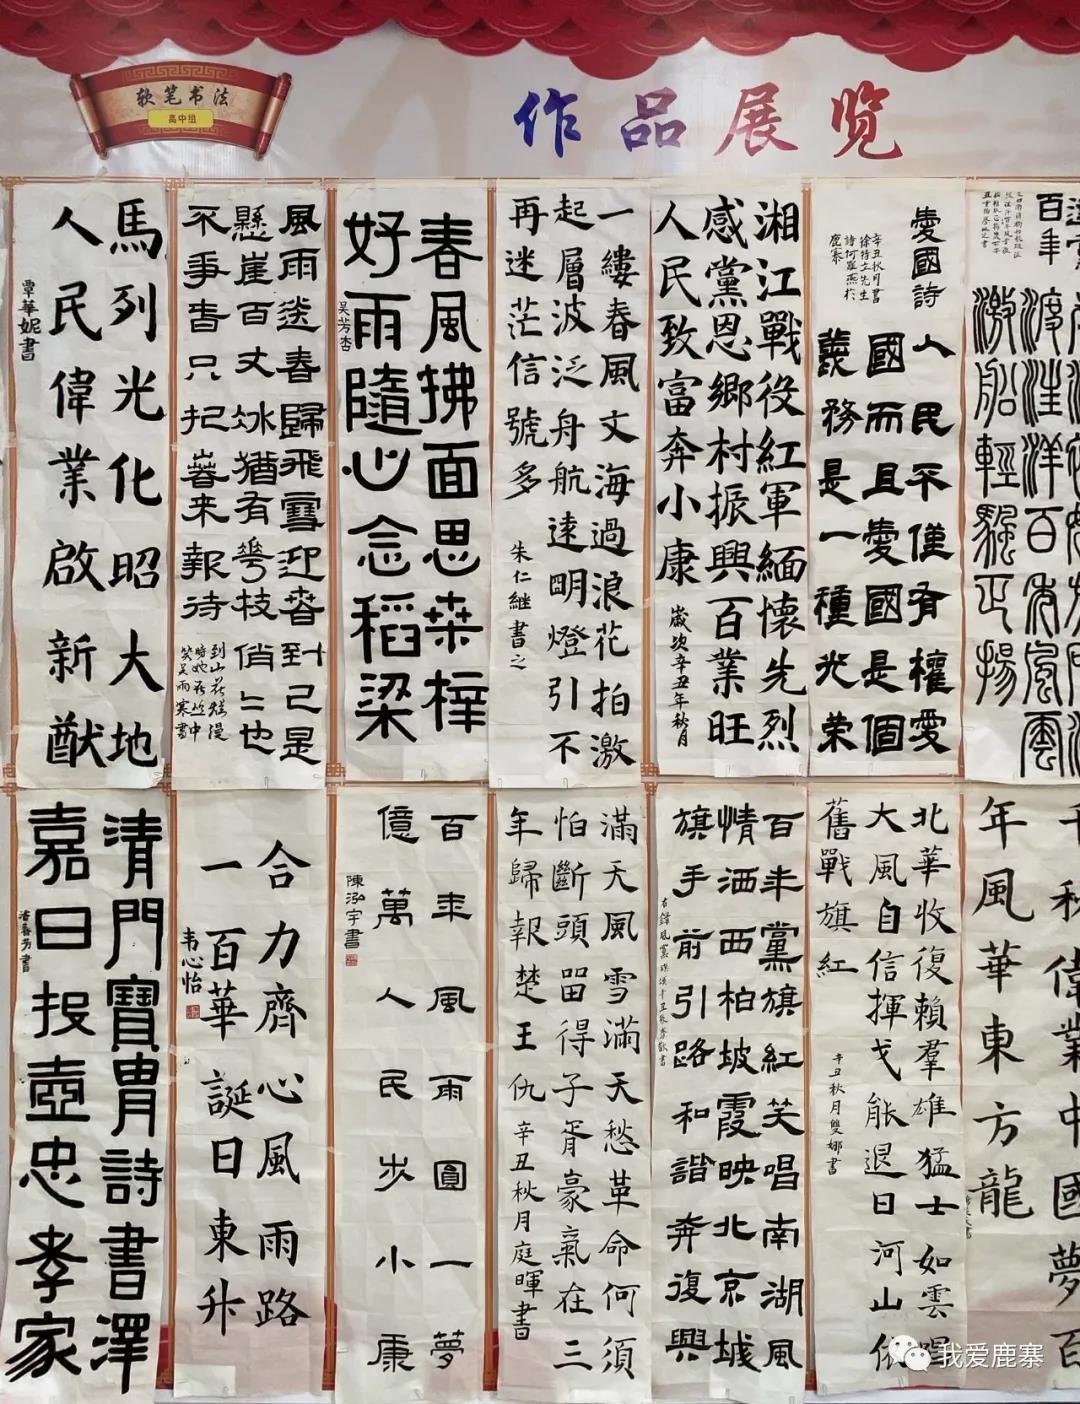 软笔书法
高中组
作品展览
馬列光化昭大地
人民偉業啟新猷
覃華妮書
風雨送春歸飛雪迎春到已是
懸崖百丈冰猶有花枝俏俏也
不爭春只把春來報待
到山花爛漫
時她在丛中
笑吴雨寒書
春風拂面思桑梓
好雨隨心念稻梁
吴芳杏
一縷春風文海過浪花拍激
起層波泛舟航遠明燈引不
再迷茫信號多
朱仁継書之
湘江戰役紅軍緬懷先烈
感黨恩鄉村振興百業旺
人民致富奔小康
歲次辛丑年秋月
愛國詩
人民不僅有權愛
國而且愛國是個
義務是一種光荣
辛丑秋月書
徐特立先生
詩何
於
鹿寨
百年
渡汪洋百年風雲
激船輕
正揚
清門寶胄詩書澤
嘉日投壺忠孝家
合力齊心風雨路
一百華誕日東升
韦心怡
百年風雨圓一夢
億萬人民步小康
陳泓宇書
滿天風雪滿天愁革命何須
怕斷頭留得子胥豪氣在三
年歸報楚王仇
辛丑秋月庭暉書
百年黨旗紅笑唱南湖風
情洒西柏坡霞映北京城
旗手前引路和諧奔復興
北華收復賴羣雄猛士如雲唱
大風自信揮戈能退日河山依
舊戰旗紅
辛丑秋月雙娜書
千秋偉業中國夢百
年風華東方龍
我爱鹿寨